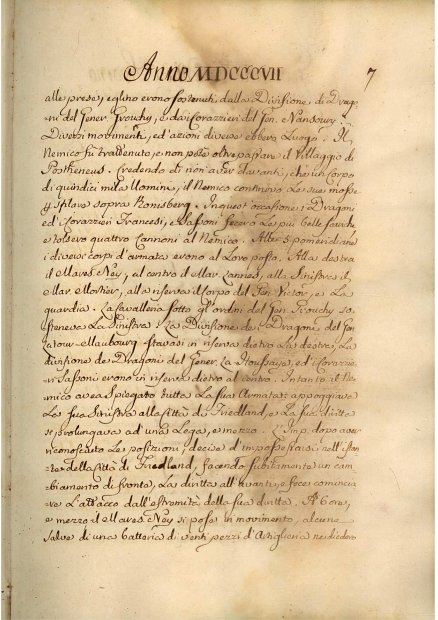 Anno MDCCCVII
7
alle prese, eglino erono sostenuti dalla Divisione, di Drago,
ni del Gener. Grouchy, e da i Corazzieri del Gen. Nansouty.
Diversi movimenti, ed' azioni diverse ebbero Luogo. Il
Nemico fù trattenuto, e non potè oltrepassare il Villaggio di
Postheneus. Credendo di non aver davanti, che un Corpo
di quindici mila Uomini, il Nemico continovò le sue mosse,
e sfilare sopra Konisberg. In quest' occasione i Dragoni
ed' i Corazzieri Francesi, e Sassoni fecero le più belle cariche,
e tolsero quattro Cannoni al Nemico. Alle 5 pomeridiane
i diversi corpi d'armata erono al Loro posto. Alla destra
il Mares. Ney, al centro il Mar. Lannes, alla Sinistra il
Mar. Mortier, alla riserva il Corpo del Gen. Victor, e La
guardia. La Cavalleria sotto gl' ordini del Gen. Grouchy so,
steneva La Sinistra. La Divisione de Dragoni del Gen.
Latour-Maubourg stavasi in riserva dietro La destra; La
divisione de Dragoni del Gener. La Houssaya, ed' i Corazzie,
ri Sassoni erono in riserva dietro al centro. Intanto il Ne,
mico avea Spiegato tutta La Sua Armata: appoggiava
La Sua Sinistra alla Città di Friedland, e La Sua diritta
si prolungava ad' una Lega, e mezzo. L' Imp. dopo aver
riconosciuto Le posizioni, decise d'impossessarsi nell' istan,
te della Città di Friedland, facendo subitamente un cam,
biamento di fronte, La diritta all' avante, e fece comincia,
re L' attacco dall' estremità della Sua diritta. A 6 ore,
e mezzo il Mares. Ney si pose in movimento, alcune
salve di una batteria di venti pezzi d'Artiglieria ne diedero